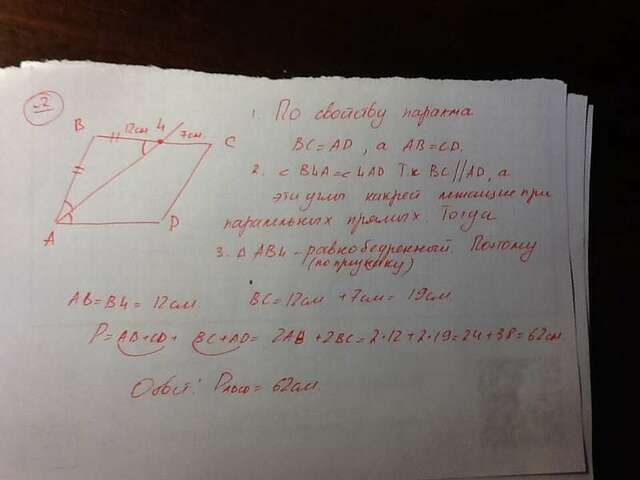 №2
B 12см 4 7см C
A D
1. По свойству паралма
BC=AD, а AB=CD.
2. < B4A=<4AD Т.к BC||AD, а
эти углы накрей лежащие при
паралельных прямых. Тогда
3. Δ AB4 - равнобедренный. Поэтому
(по признаку)
AB=B4= 12см. BC=12см +7см= 19см.
P= AB+CD + BC+AD= 2AB +2BC=2·12+2·19=24+38=62см.
Ответ: P = 62см